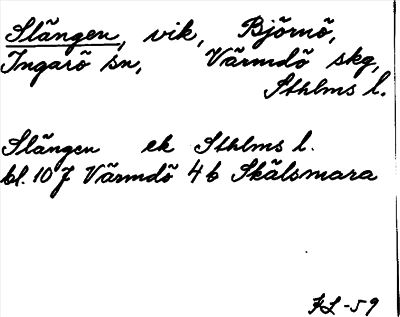 Slängen, vik, Björnö,
Ingarö sn, Värmdö skg,
Sthlms l.
Slängen ek Sthlms l.
bl. 10 J Värmdö 4 b Skälsmara
KL-59